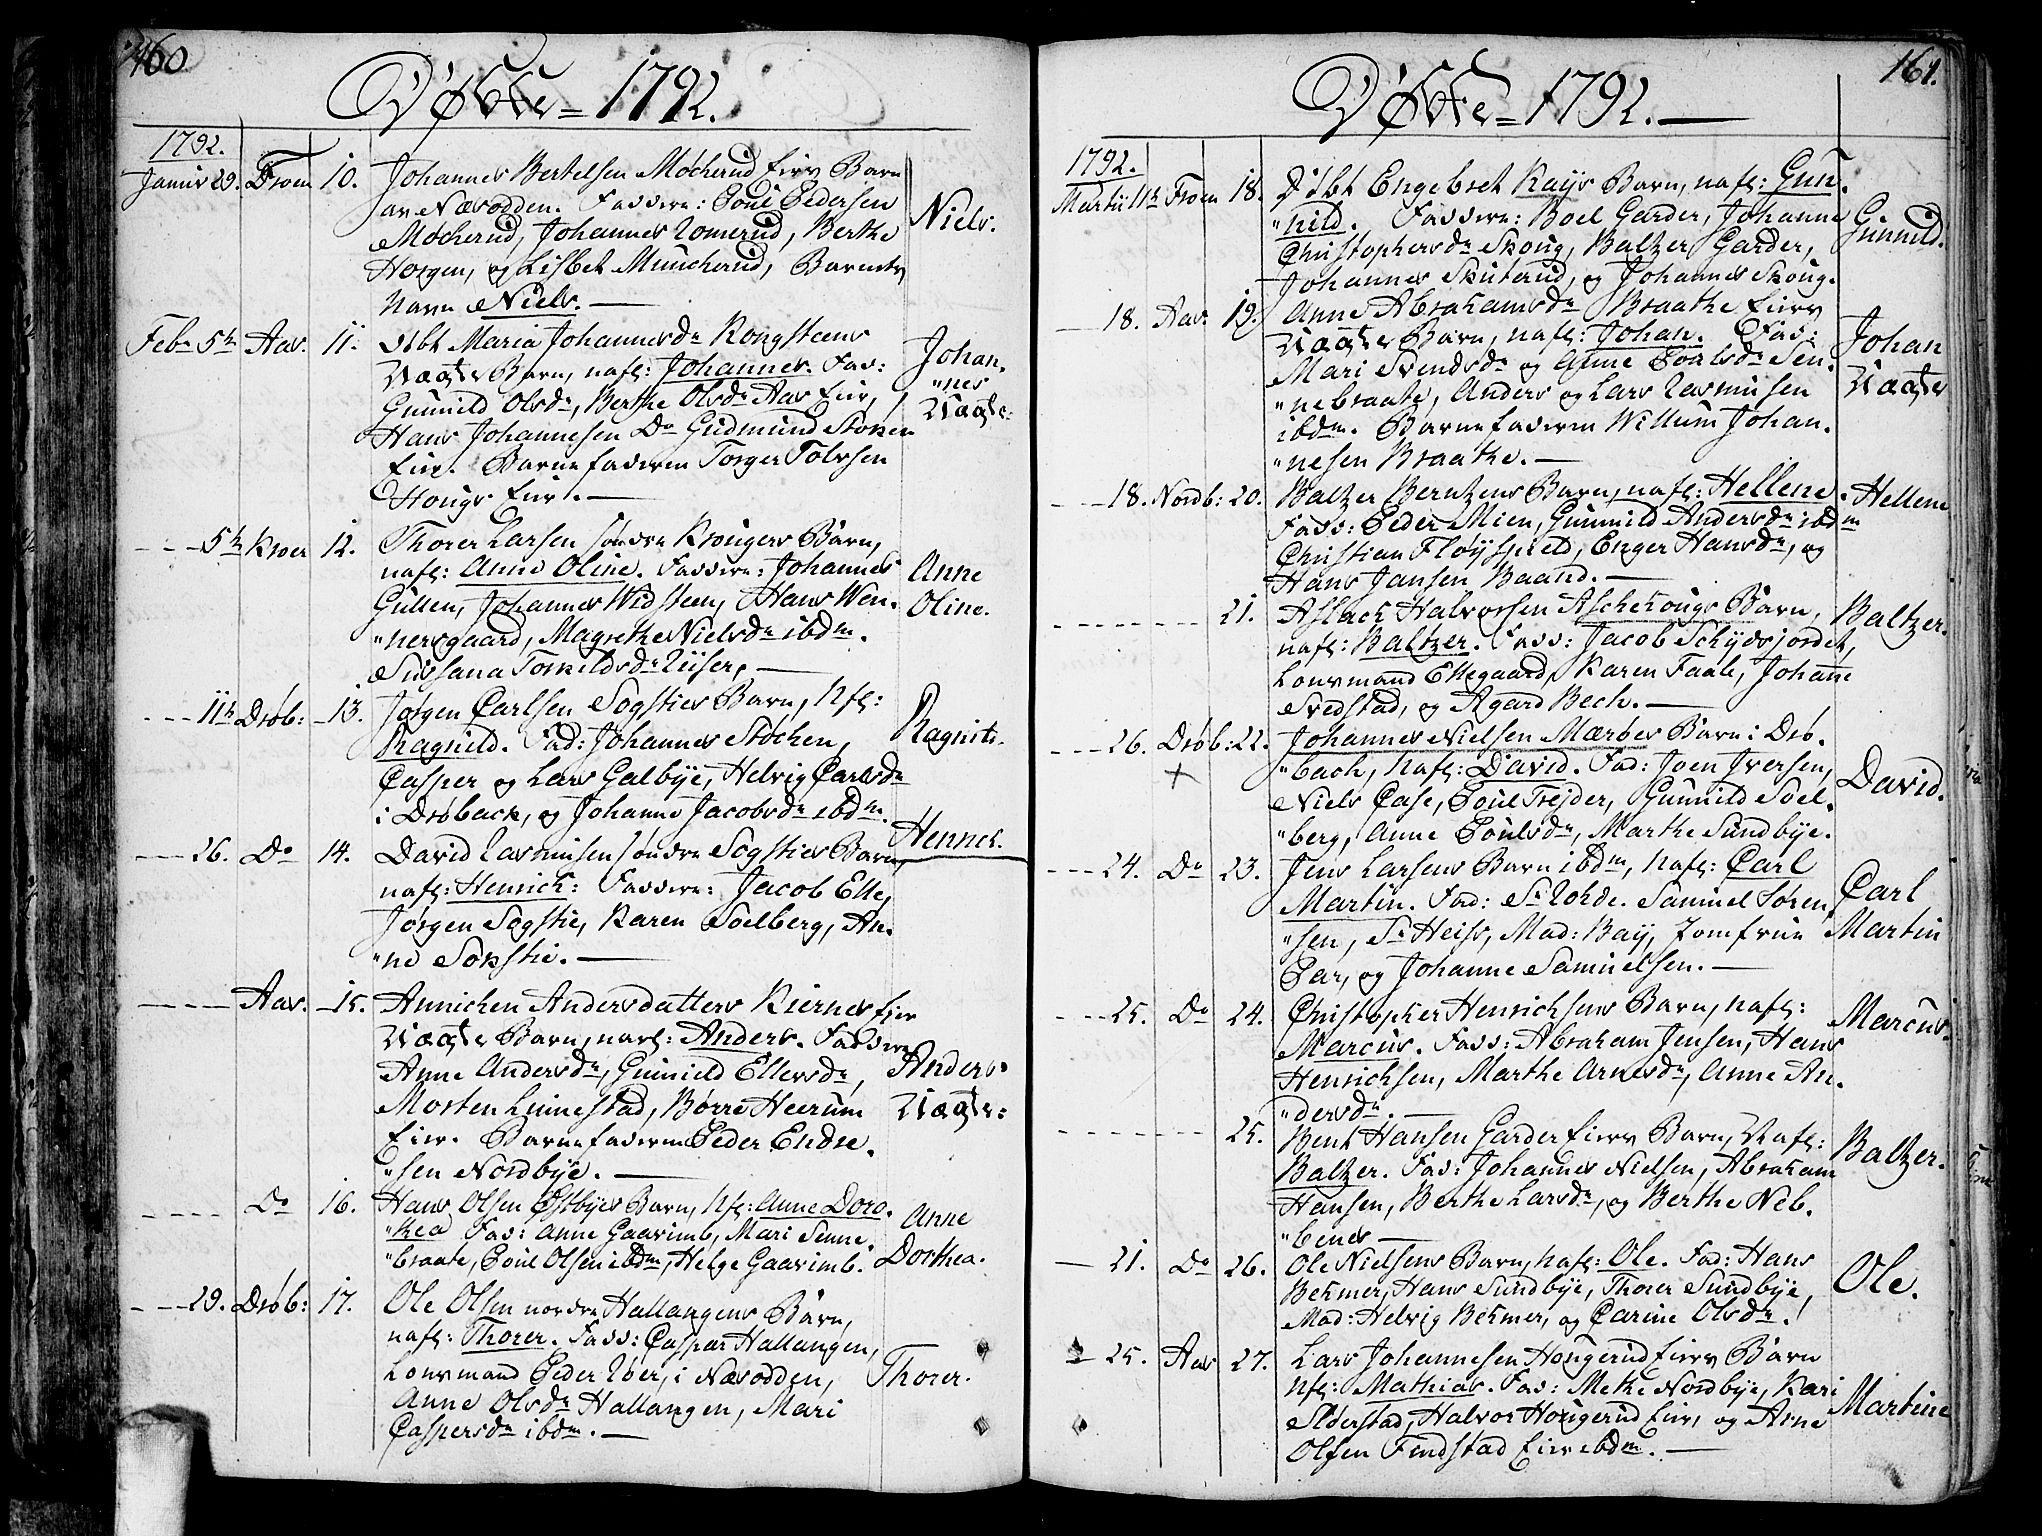 160
Døbte = 1792.
1792.
Januv 29. Froen 10. Johannes Bertelsen Møcherud Eiers Barn
av Næsodden. Faddere: Poul Pedersen
Møcherud, Johannes Romerud, Berthe
Horgen, og Lisbet Muncherud, Barnets
Navn Niels. —
Niels.
Febr 5te Aas. 11. Maria Johannesdr Kongsteens
Uægte Barn, nafl: Johannes. Fad:
Gunnild Olsdr, Berthe Olsdr Aas Eie,
Hans Johannesen Do Gudmund
Eie. Barnefaderen Torger Tolvsen
Hougs Eie. —
Johan
"nes
Uægte:
- - - 5te Kroer 12. Thorer Larsen søndre Krougers Barn,
nafl: Anne Oline. Faddere: Johannes
Gulsen, Johannes Widsteen, Hans Wen-
"nersgaard, Magrethe Nielsdr ibdm.
Sussana Torkildsdr —
Anne
Oline.
- - - 11te Drøb: 13. Jørgen Carlsen Sogsties Barn, Nfl:
Ragnild. Fad: Johannes Støchen,
Casper og Lars Galbye, Helvig Carlsdr
i Drøbach, og Johanne Jacobsdr ibdm.
- - - 26. Do 14. David Rasmusen søndre Sogsties Barn
nafl: Henrich: Faddere: Jacob Elle,
Jørgen Sogstie, Karen Soelberg, An-
"ne Sokstie. —
- - - - Aas. 15. Annichen Andersdatters Kiernes Eie
Uægte Barn, navl: Anders. Faddere
Anne Andersdr, Gunnild Ellersdr,
Morten Linnestad, Børre Heerum
Eie. Barnefaderen Peder Endre-
"sen Nordbye. —
Anders
Uægte:
- - - - Do 16. Hans Olsen Østbyes Barn, Nfl: Anne Doro-
"thea Fad: Anne Gaarimb, Mari Senne-
"braate, Poul Olsen ibdm, Helge Gaarimb.
Anne
Dorthea.
- - - 29. Drøb: 17. Ole Olsen nordre Hallangens Barn,
nafl: Thorer. Fadd: Caspar Hallangen,
Lensmand Peder i Næsodden,
Anne Olsdr Hallangen, Mari
Caspersdr ibdm. —
Thorer.
161.
Døbte = 1792. —
1792.
Martii 11te Froen 18. Døbt Engebret Kays Barn, nafl: Gun-
"nild. Faddere: Boel Garder, Johanne
Christophersdr Skoug, Baltzer Garder,
Johannes Skuterud, og Johannes Skoug.
Gunnild.
- - 18. Aas. 19. Anne Abrahamsdr Braathe Eies
Uægte Barn, nafl: Johan. Fad:
Mari Svendsdr og Anne Poulsdr Sen-
"nebraate, Anders og Lars Rasmusen
ibdm. Barnefaderen Willum Johan-
"nesen Braathe. —
Johan
Uægte
- - - 18. Nordb: 20. Baltzer Berntzens Barn, nafl: Hellene.
Fadd: Peder Mien, Gunnild Andersdr ibdm
Christian Fløyspield, Enger Hansdr, og
Hans Jansen Baand. —
Hellene
- - - - - - - 21. Aslack Halvorsen Askehougs Barn,
nafl: Baltzer. Fadd: Jacob Schydsjordet,
Lensmand Ellegaard, Karen Faale, Johanne
Svedstad, og Agard Bech. —
Baltzer.
- - - 26. Drøb: 22. Johannes Nielsen Mærbes Barn i Drø-
"bach, Nafl: David. Fad: Joen Iversen,
Niels Case, Poul Trejder, Gunnild Soel-
"berg, Anne Poulsdr, Marthe Sundbye.
+
David.
- - - 24. Do 23. Jens Larsens Barn ibdm, Nafl: Carl
Martin. Fad: Sr Rohde. Samuel Søren-
"sen, Sr Heiss, Mad: Bay, Jomfrue
Par, og Johanne Samuelsen. —
Carl
Martin
- - - 25. Do 24. Christopher Henrichsens Barn, nafl:
Marcus. Fadd: Abraham Jensen, Hans
Henrichsen, Marthe Arnesdr, Anne An-
"dersdr. —
Marcus.
- - - - - - - 25. Bent Hansen Garder Eies Barn, Nafl:
Baltzer. Fad: Johannes Nielsen, Abraham
Hansen, Berthe Larsdr, og Berthe Neb-
"benes —
Baltzer.
— 21. Do 26. Ole Nielsens Barn, Nafl: Ole. Fad: Hans
Behmer, Hans Sundbye, Thorer Sundbye,
Mad: Helvig Behmer, og Carine Olsdr.
Ole.
25. Aas 27. Lars Johannesen Hougerud Eies Barn
Nfl: Mathias. Fad: Methe Nordbye, Kari
Elderstad, Halvor Hougerud Eie, og Arne
Olsen Findstad Eie ibdm. —
Martine